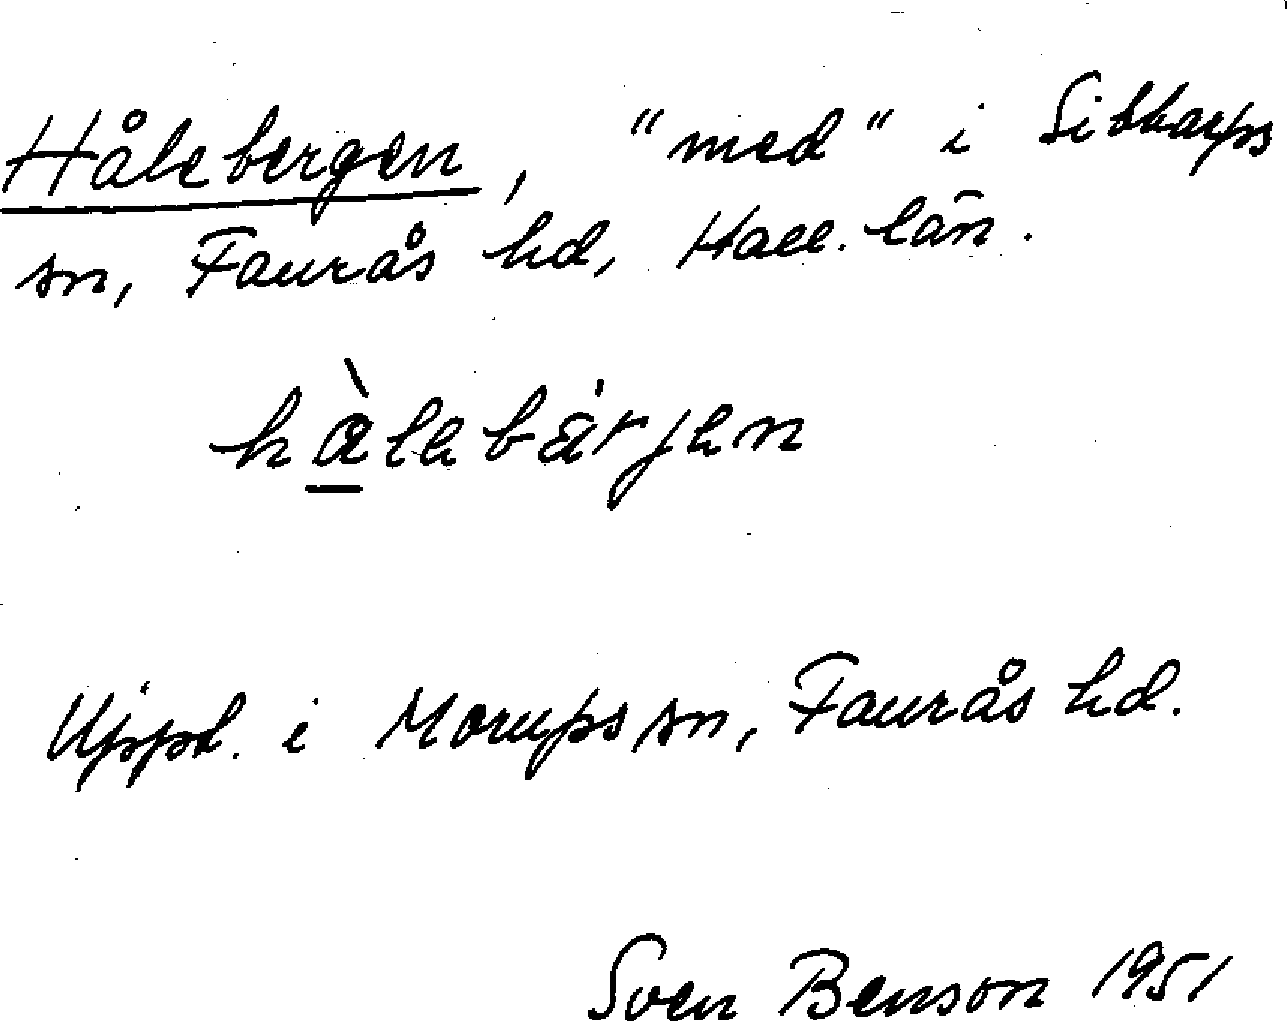 Hålebergen, "med" i Sibbarps
sn, Faurås hd, Hall. län.
hàlebä́rjen
Uppt. i Morups sn, Faurås hd.
Sven Benson 1951